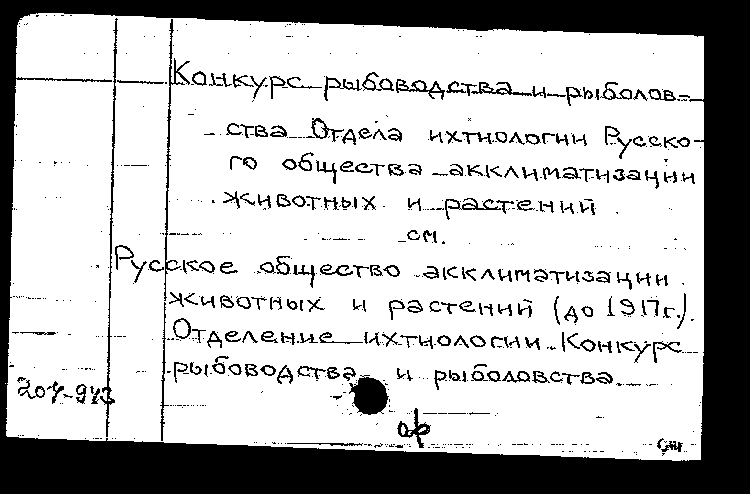 Конкурс рыбоводства и рыболов-
ства Отдела ихтиологии Русско-
го общества акклиматизации
животных и растений
см.
Русское общество акклиматизации
животных и растений (до 1917г.).
Отделение ихтиологии. Конкурс
рыбоводства и рыболовства.